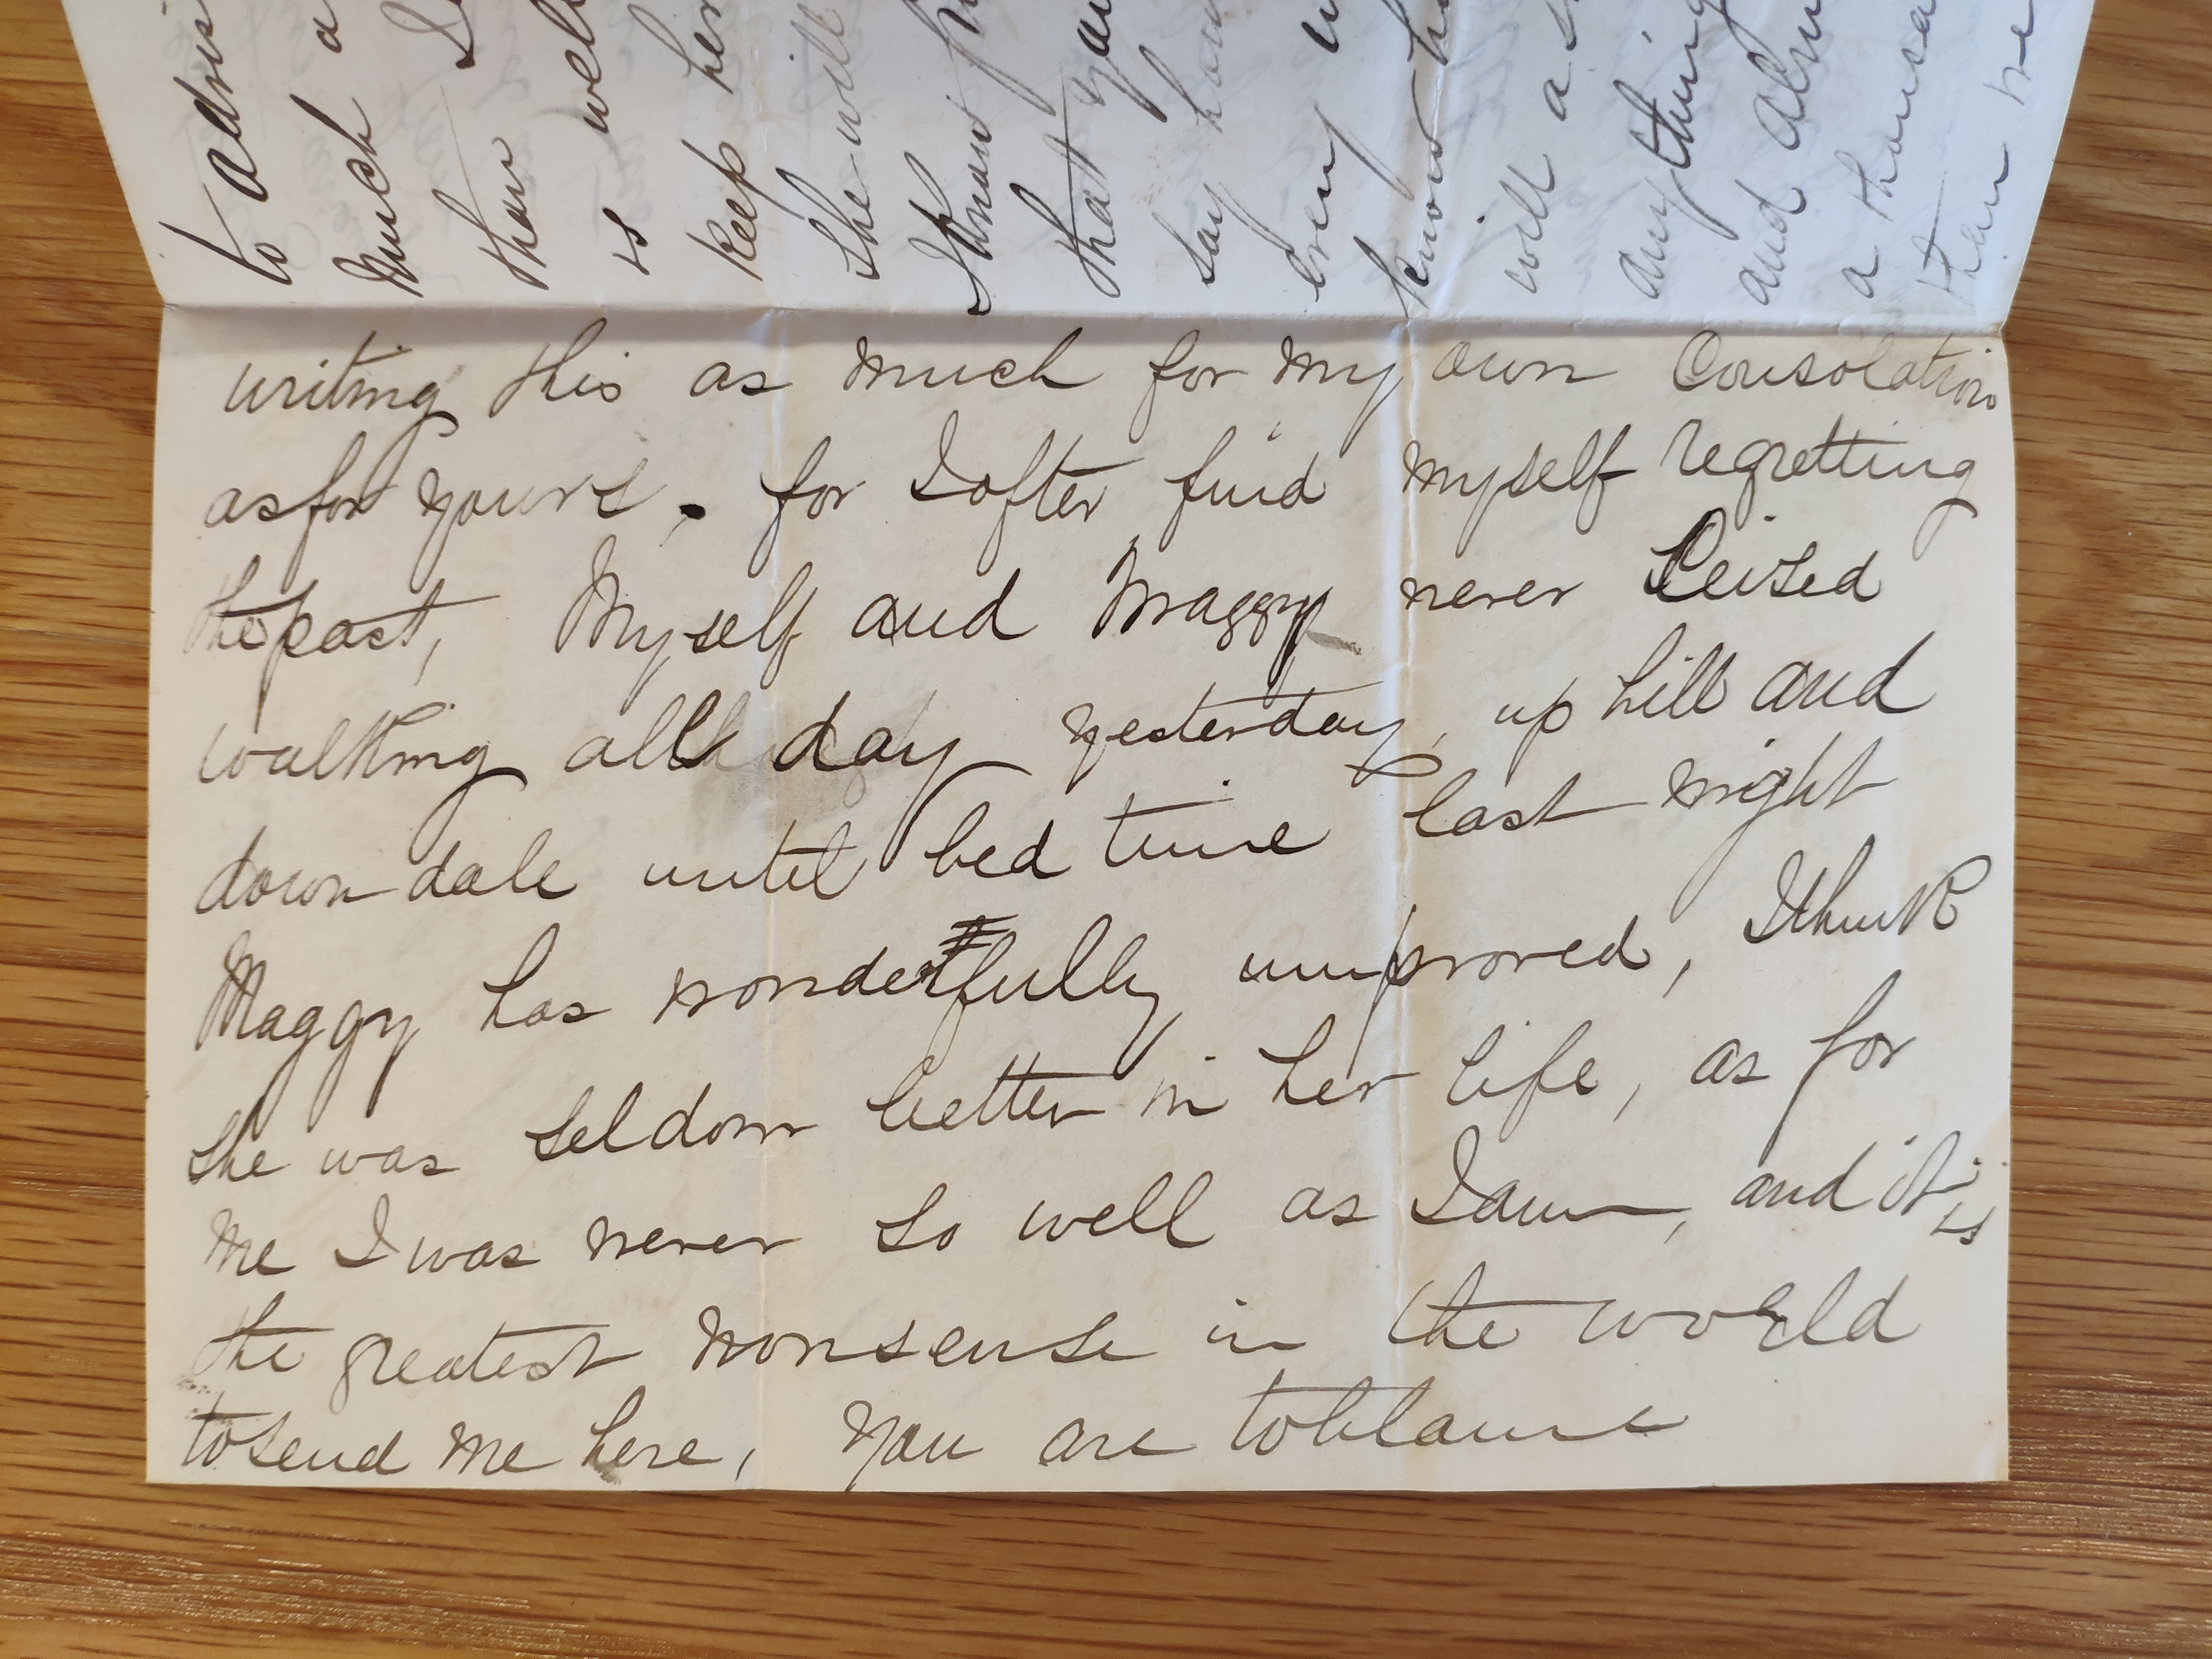 to
much a
than I
is well
keep her
she will
I know
that you
say how
every
know
will a
any thing
and
a
than
writing this as much for my own Consolation
as for yours. for I ofter find myself regretting
the past, Myself and Maggy never Ceised
walking all day yesterday, up hill and
down dale until bed time last night
Maggy has wonderfully improved, I think
she was seldom better in her life, as for
me I was never so well as I am, and it is
the greatest nonsense in the world
to send me here, you are to blame